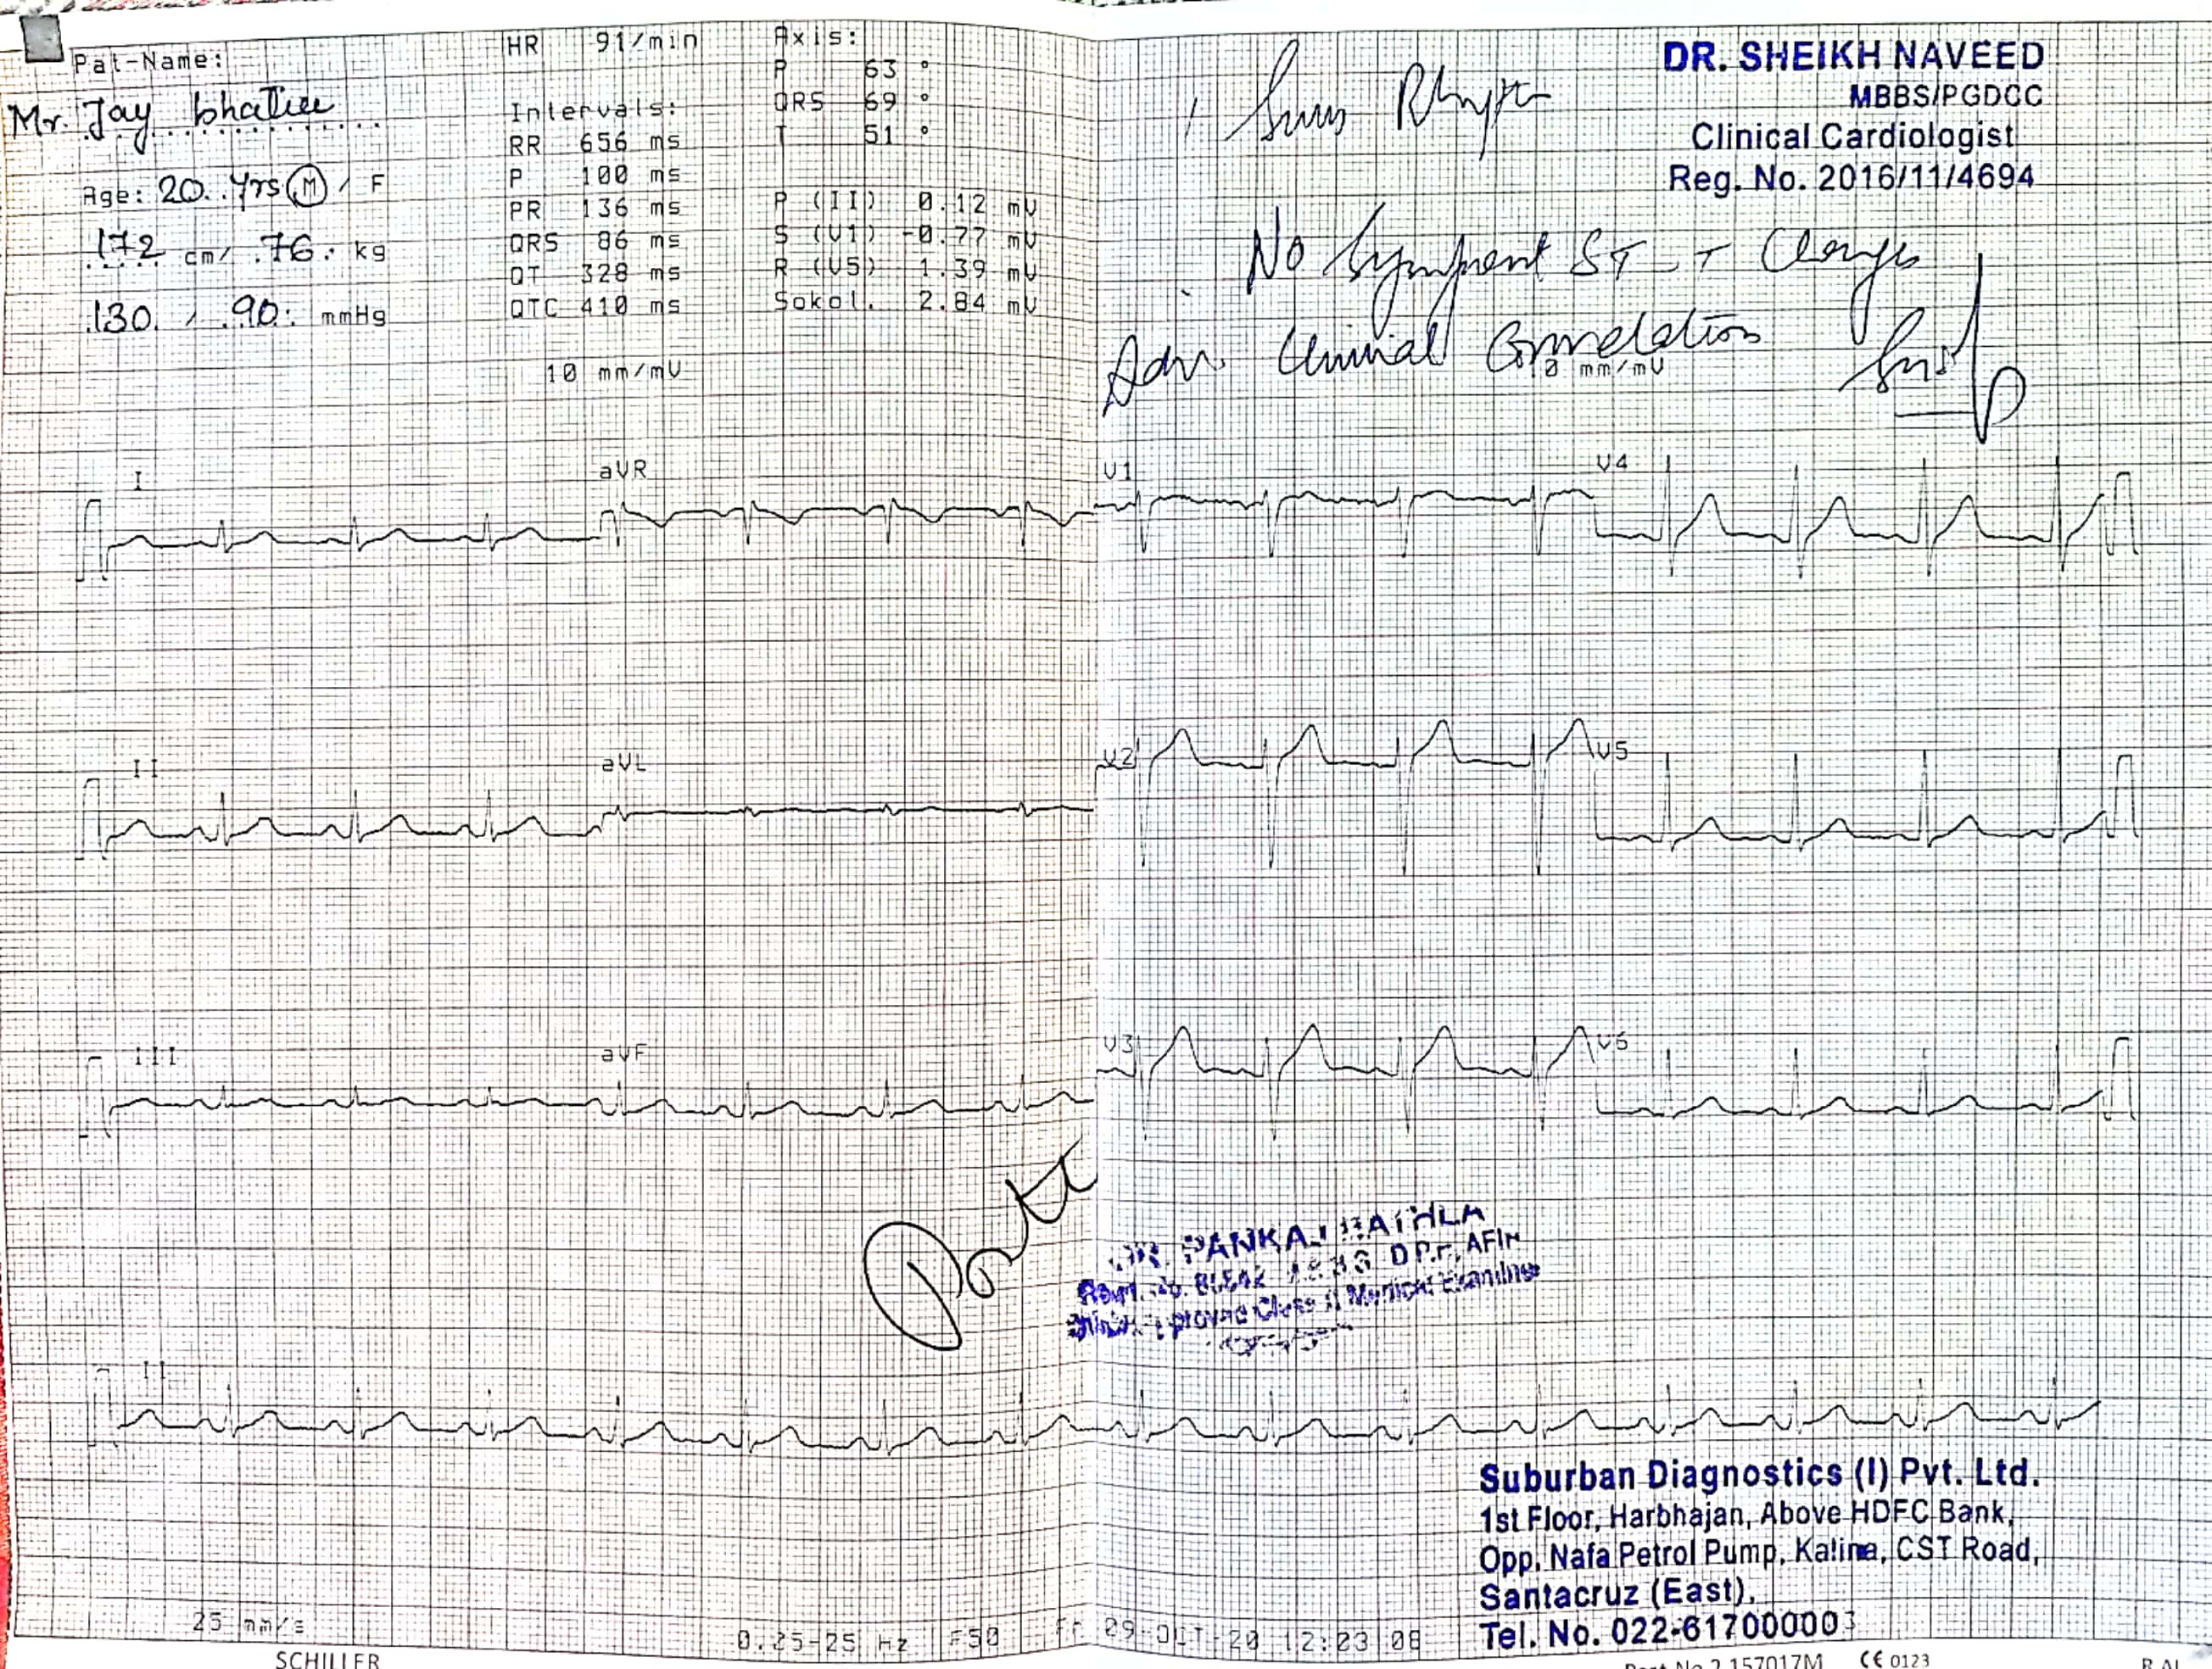 Pat-Name:
Mr. Jay
Age: 20 yrs M / F
172 cm/ 76 kg
130 / 90 mmHg
HR 91/min
Intervals:
RR 656 ms
P 100 ms
PR 136 ms
QRS 86 ms
QT 328 ms
QTC 410 ms
10 mm/mV
Axis:
P 63 °
QRS 69 °
T 51 °
P (II) 0.12 mV
S (V1) -0.77 mV
R (V5) 1.39 mV
Sokol. 2.84 mV
Sinus Rhythm
No ST-T Changes
Adv. Clinical Correlation
mm/mV
DR. SHEIKH NAVEED
MBBS/PGDCC
Clinical Cardiologist
Reg. No. 2016/11/4694
I
aVR
V1
V4
II
aVL
V2
V5
III
aVF
V3
V6
DR. PANKAJ
Medical Examiner
II
Suburban Diagnostics (I) Pvt. Ltd.
1st Floor, Harbhajan, Above HDFC Bank,
Opp. Nafa Petrol Pump, Kalina, CST Road,
Santacruz (East),
Tel. No. 022-617000003
25 mm/s
0.25-25 Hz F50 Fr 09-OCT-20 12:23:08
SCHILLER
2.157017M CE 0123